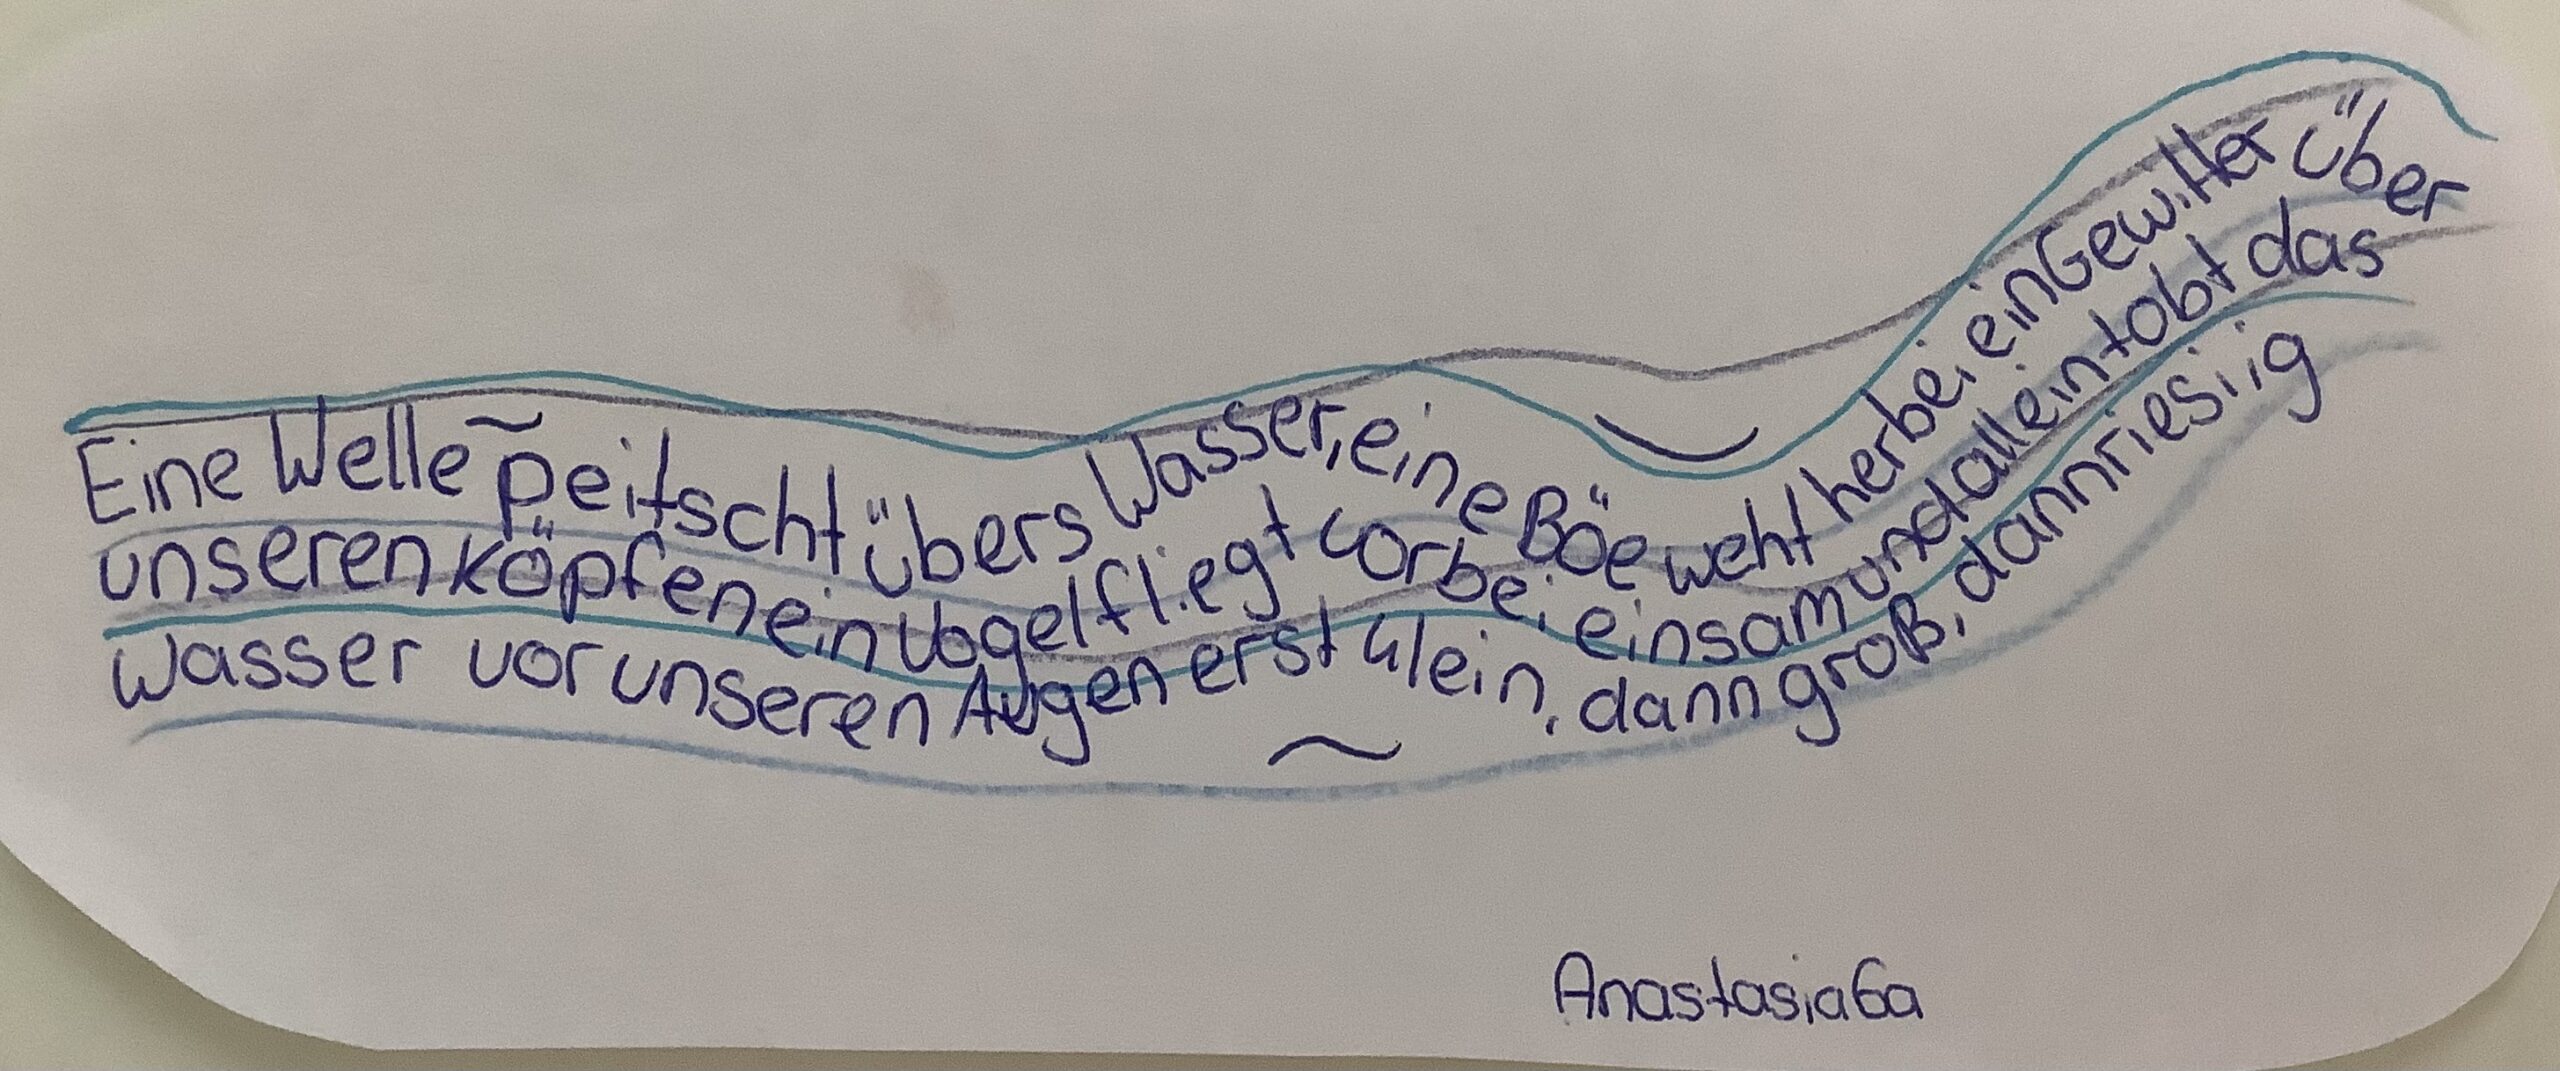 Eine Welle peitscht übers Wasser, eine Böe weht herbei ein Gewitter über
unseren Köpfen ein Vogel fliegt vorbei einsam und allein tobt das
Wasser vor unseren Augen erst klein, dann groß, dann riesiig
Anastasia 6a